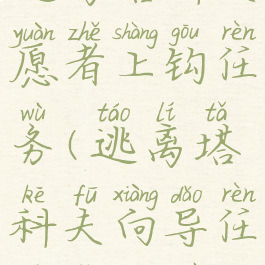 yuàn zhě shàng gōu rèn
愿者上钩任
wù táo lí tǎ
务(逃离塔
kē fū xiàng dǎo rèn
科夫向导任